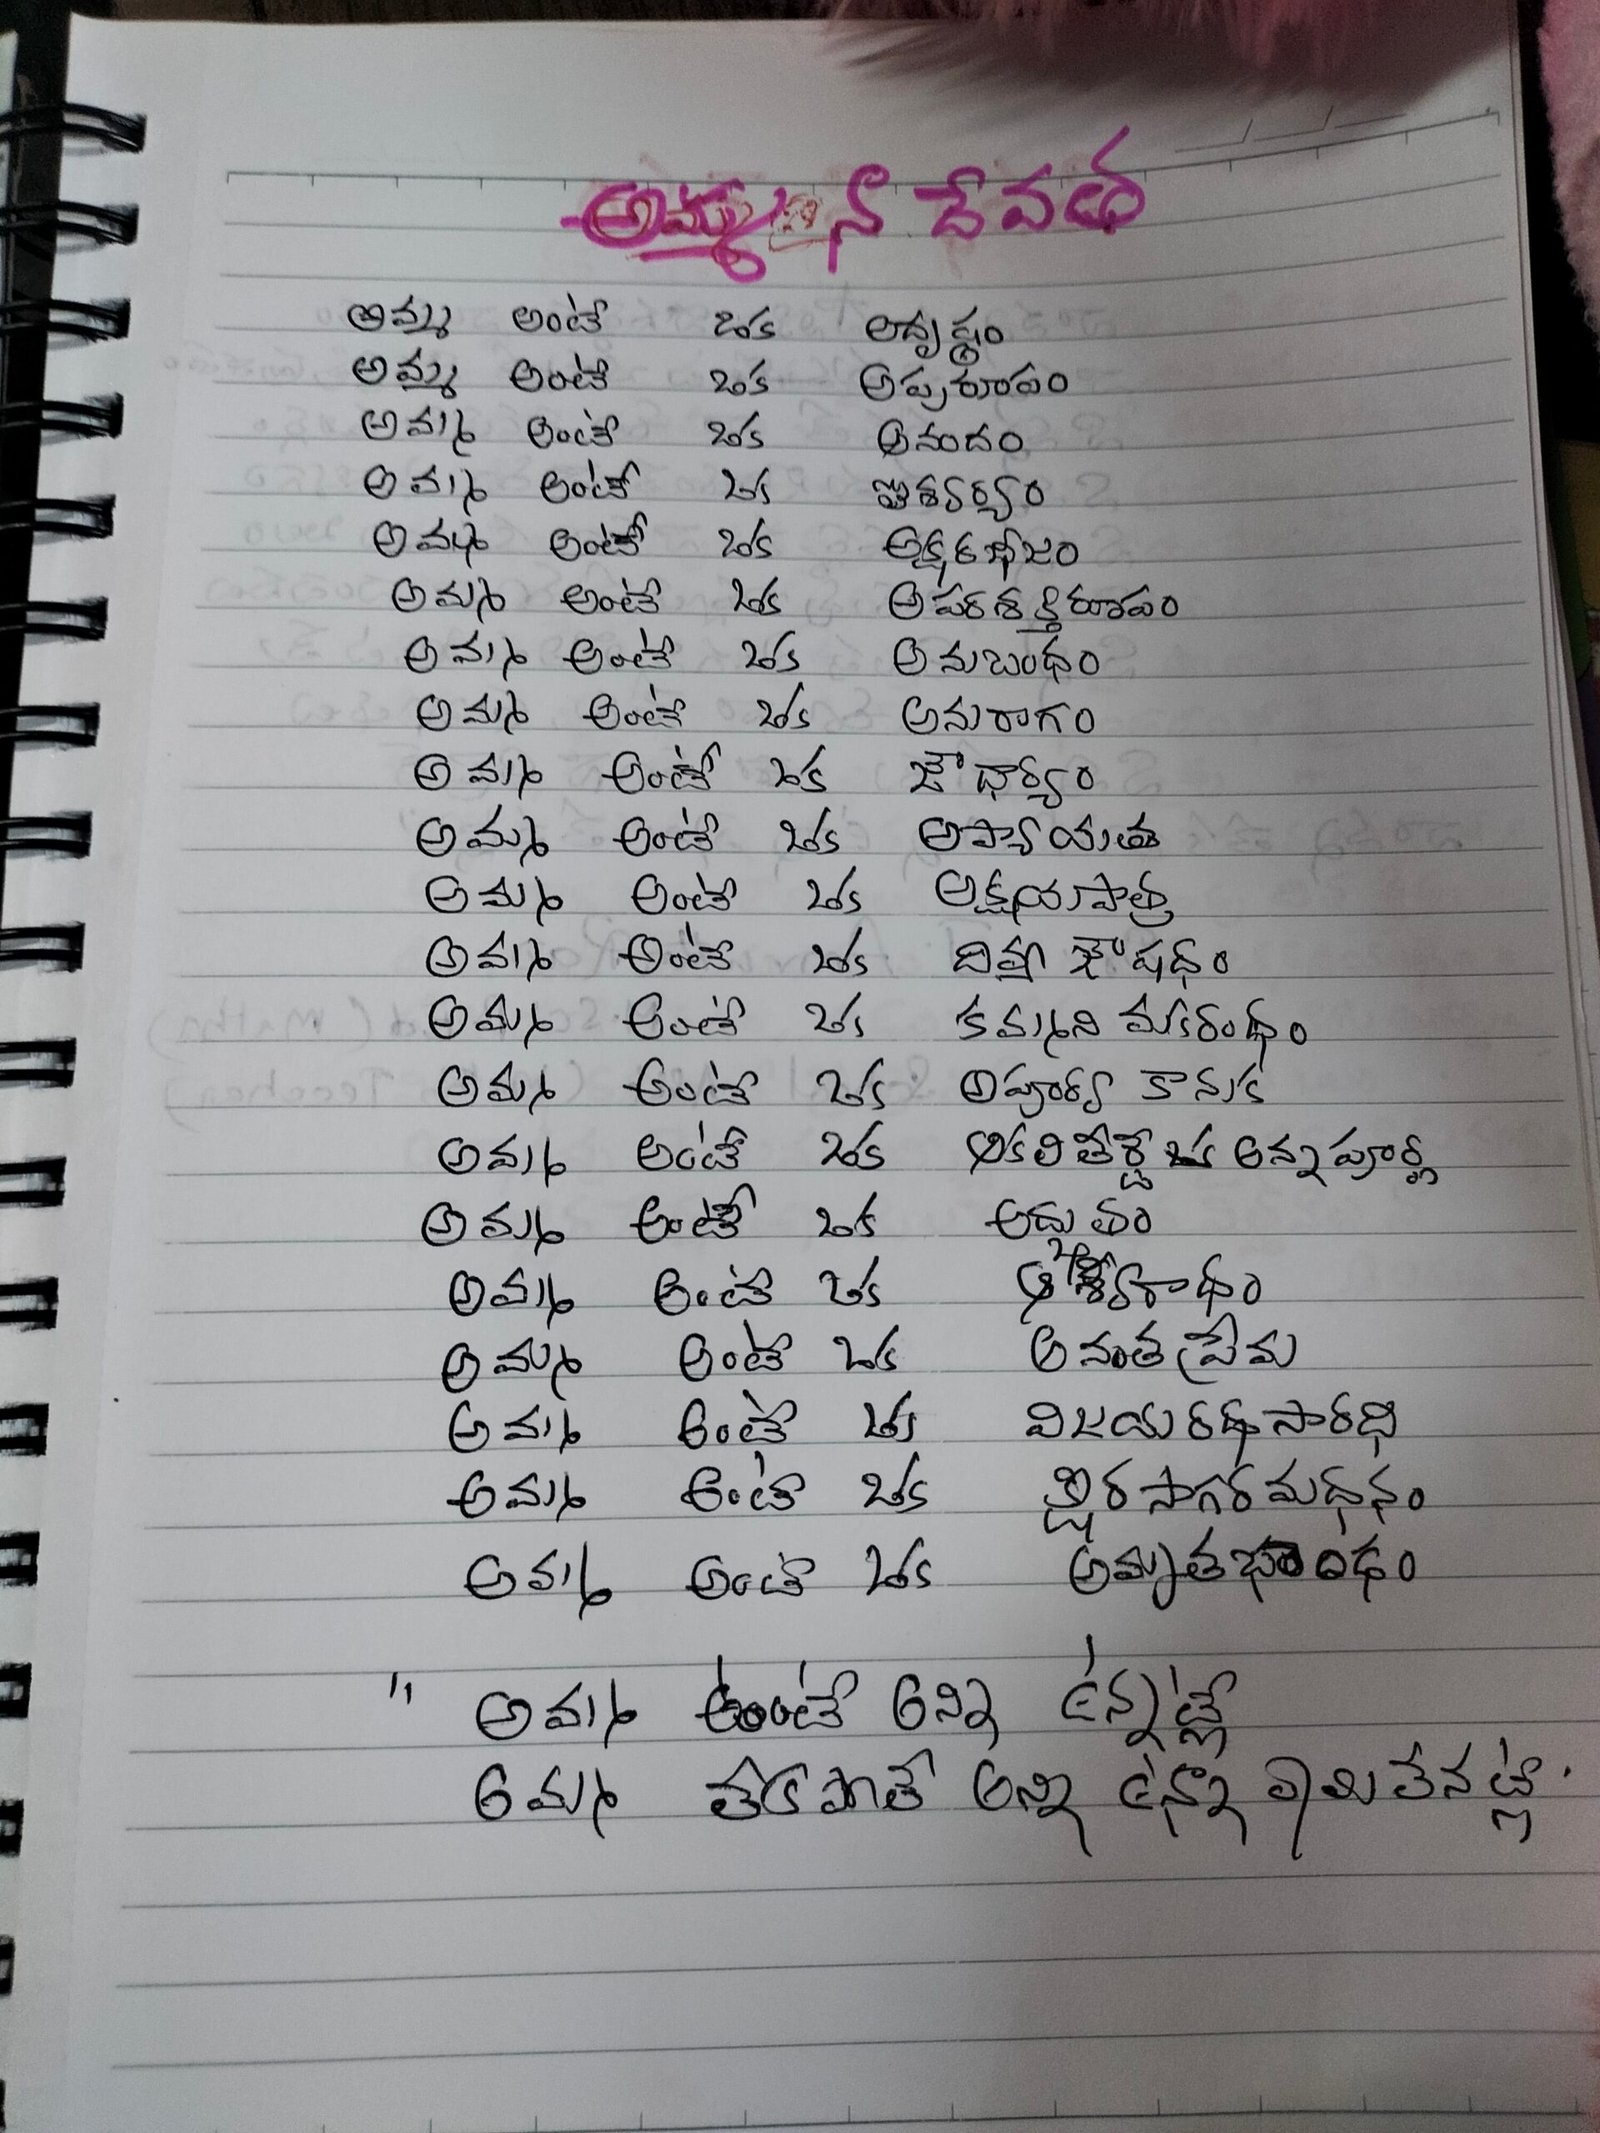 అమ్మ నా దేవత
అమ్మ అంటే ఒక అదృష్టం
అమ్మ అంటే ఒక అపురూపం
అమ్మ అంటే ఒక ఆనందం
అమ్మ అంటే ఒక ఐశ్వర్యం
అమ్మ అంటే ఒక అక్షరబీజం
అమ్మ అంటే ఒక అపరశక్తిరూపం
అమ్మ అంటే ఒక అనుబంధం
అమ్మ అంటే ఒక అనురాగం
అమ్మ అంటే ఒక ఔధార్యం
అమ్మ అంటే ఒక ఆప్యాయత
అమ్మ అంటే ఒక అక్షయపాత్ర
అమ్మ అంటే ఒక దివ్య ఔషధం
అమ్మ అంటే ఒక కమ్మని మకరంధం
అమ్మ అంటే ఒక అపూర్వ కానుక
అమ్మ అంటే ఒక ఆకలి తీర్చే ఒక అన్నపూర్ణ
అమ్మ అంటే ఒక అద్భుతం
అమ్మ అంటే ఒక ఆశీర్వాధం
అమ్మ అంటే ఒక అనంత ప్రేమ
అమ్మ అంటే ఒక విజయరథసారథి
అమ్మ అంటే ఒక క్షీరసాగరమధనం
అమ్మ అంటే ఒక అమృతభాంఢం
" అమ్మ ఉంటే అన్ని ఉన్నట్లే
అమ్మ లేకపోతే అన్ని ఉన్నా ఏమి లేనట్లే.